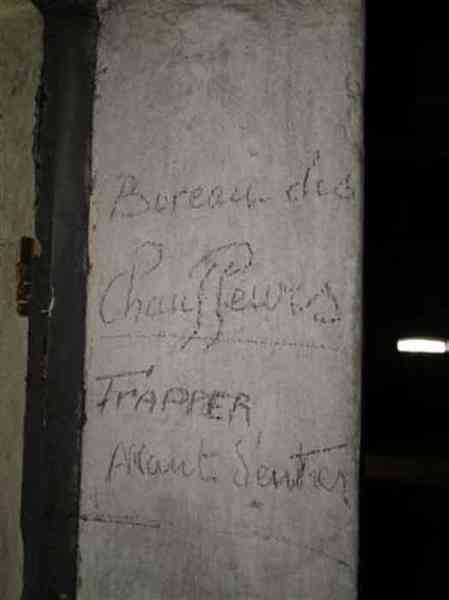 Bureau des
Chauffeurs
FRAPPER
Avant d'entrer